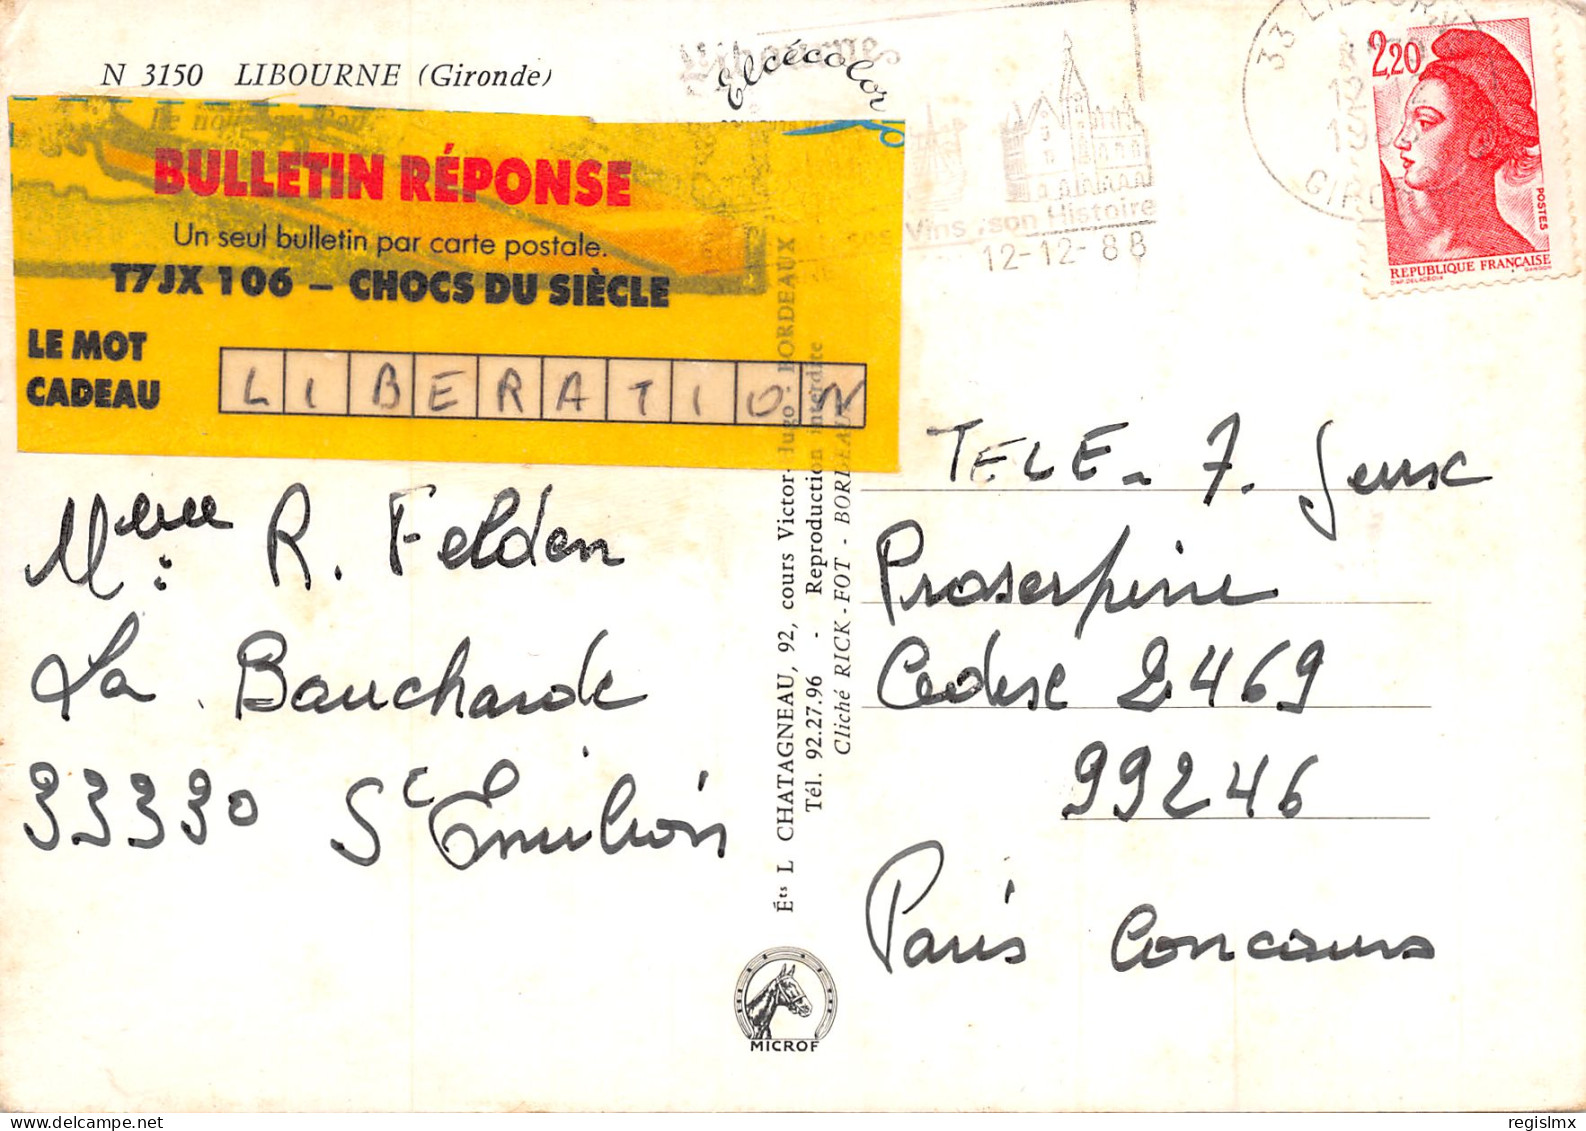 N 3150 LIBOURNE (Gironde)
Elcécolor
Libourne
ses Vins, son Histoire
12-12-88
33 LIBOURN
13
GIRO
2,20
POSTES
REPUBLIQUE FRANÇAISE
BULLETIN RÉPONSE
Un seul bulletin par carte postale.
T7JX 106 – CHOCS DU SIÈCLE
LE MOT
CADEAU
LIBERATION
Mme R. Felden
La Baucharde
33330 St Emilion
Éts L CHATAGNEAU, 92, cours Victor-Hugo BORDEAUX
Tél. 92.27.96 - Reproduction interdite
Cliché RICK-FOT - BORDEAUX
TELE-7. Jeux
Proserpine
Cedex 2469
99246
Paris Concours
MICROF
Delcampe.net
regislmx